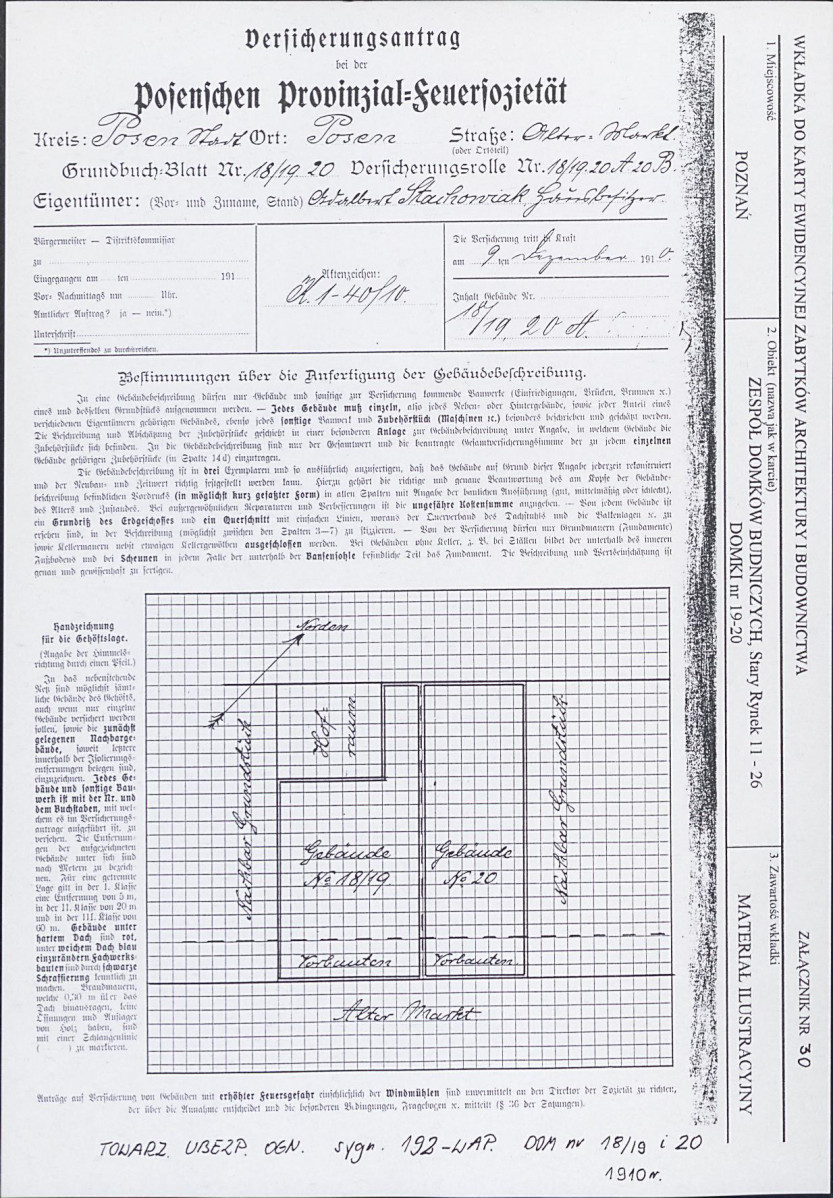 Versicherungsantrag
bei der
Posenschen Provinzial-Feuersozietät
Kreis: Posen Stadt Ort: Posen Straße: Alter-Markt.
(oder Ortsteil)
Grundbuch-Blatt Nr. 18/19. 20 Versicherungsrolle Nr. 18/19. 20 A 20 B.
Eigentümer: (Vor- und Zuname, Stand) Adalbert Stachowiak Hausbesitzer.
Bürgermeister — Distriktskommissar
zu
Eingegangen am ten 191
Vor- Nachmittags um Uhr.
Amtlicher Auftrag? ja — nein.*)
Unterschrift
*) Unzutreffendes zu durchstreichen.
Aktenzeichen:
K. 1-40/10.
Die Versicherung tritt in Kraft
am 9 ten Dezember 1910.
Inhalt Gebäude Nr.
18/19, 20 A.
Bestimmungen über die Anfertigung der Gebäudebeschreibung.
In eine Gebäudebeschreibung dürfen nur Gebäude und sonstige zur Versicherung kommende Bauwerke (Einfriedigungen, Brücken, Brunnen ꝛc.)
eines und desselben Grundstücks aufgenommen werden. — Jedes Gebäude muß einzeln, also jedes Neben- oder Hintergebäude, sowie jeder Anteil eines
verschiedenen Eigentümern gehörigen Gebäudes, ebenso jedes sonstige Bauwert und Zubehörstück (Maschinen ꝛc.) besonders beschrieben und geschätzt werden.
Die Beschreibung und Abschätzung der Zubehörstücke geschieht in einer besonderen Anlage zur Gebäudebeschreibung unter Angabe, in welchem Gebäude die
Zubehörstücke sich befinden. In die Gebäudebeschreibung sind nur der Gesamtwert und die beantragte Gesamtversicherungssumme der zu jedem einzelnen
Gebäude gehörigen Zubehörstücke (in Spalte 14 d) einzutragen.
Die Gebäudebeschreibung ist in drei Exemplaren und so ausführlich anzufertigen, daß das Gebäude auf Grund dieser Angabe jederzeit rekonstruiert
und der Neubau- und Zeitwert richtig festgestellt werden kann. Hierzu gehört die richtige und genaue Beantwortung des am Kopfe der Gebäude-
beschreibung befindlichen Vordrucks (in möglichst kurz gefaßter Form) in allen Spalten mit Angabe der baulichen Ausführung (gut, mittelmäßig oder schlecht),
des Alters und Zustandes. Bei außergewöhnlichen Reparaturen und Verbesserungen ist die ungefähre Kostensumme anzugeben. — Von jedem Gebäude ist
ein Grundriß des Erdgeschosses und ein Querschnitt mit einfachen Linien, woraus der Querverband des Dachstuhls und die Balkenlagen ꝛc. zu
ersehen sind, in der Beschreibung (möglichst zwischen den Spalten 3—7) zu skizzieren. — Von der Versicherung dürfen nur Grundmauern (Fundamente)
sowie Kellermauern nebst etwaigen Kellergewölben ausgeschlossen werden. Bei Gebäuden ohne Keller, z. B. bei Ställen bildet der unterhalb des inneren
Fußbodens und bei Scheunen in jedem Falle der unterhalb der Bansensohle befindliche Teil das Fundament. Die Beschreibung und Wertseinschätzung ist
genau und gewissenhaft zu fertigen.
Handzeichnung
für die Gehöftslage.
(Angabe der Himmels-
richtung durch einen Pfeil.)
In das nebenstehende
Netz sind möglichst sämt-
liche Gebäude des Gehöfts,
auch wenn nur einzelne
Gebäude versichert werden
sollen, sowie die zunächst
gelegenen Nachbarge-
bäude, soweit letztere
innerhalb der Isolierungs-
entfernungen belegen sind,
einzuzeichnen. Jedes Ge-
bäude und sonstige Bau-
werk ist mit der Nr. und
dem Buchstaben, mit wel-
chem es im Versicherungs-
antrage aufgeführt ist, zu
versehen. Die Entfernun-
gen der aufgezeichneten
Gebäude unter sich sind
nach Metern zu bezeich-
nen. Für eine getrennte
Lage gilt in der I. Klasse
eine Entfernung von 5 m,
in der II. Klasse von 20 m
und in der III. Klasse von
60 m. Gebäude unter
hartem Dach sind rot,
unter weichem Dach blau
einzurändern Fachwerks-
bauten sind durch schwarze
Schraffierung kenntlich zu
machen. Brandmauern,
welche 0,30 m über das
Dach hinausragen, keine
Öffnungen und Auflager
von Holz haben, sind
mit einer Schlangenlinie
( ) zu markieren.
Norden
Hof-
raum
Nachbar Grundstück
Gebäude
No 18/19.
Gebäude
No 20
Nachbar Grundstück
Vorbauten
Vorbauten.
Alter Markt
Anträge auf Versicherung von Gebäuden mit erhöhter Feuersgefahr einschließlich der Windmühlen sind unvermittelt an den Direktor der Sozietät zu richten,
der über die Annahme entscheidet und die besonderen Bedingungen, Fragebogen ꝛc. mitteilt (§ 36 der Satzungen).
TOWARZ. UBEZP. OGN. sygn. 192-WAP. DOM nr 18/19 i 20
1910 r.
WKŁADKA DO KARTY EWIDENCYJNEJ ZABYTKÓW ARCHITEKTURY I BUDOWNICTWA
ZAŁĄCZNIK NR 30
1. Miejscowość
POZNAŃ
2. Obiekt (nazwa jak w karcie)
ZESPÓŁ DOMKÓW BUDNICZYCH, Stary Rynek 11 - 26
DOMKI nr 19-20
3. Zawartość wkładki
MATERIAŁ ILUSTRACYJNY